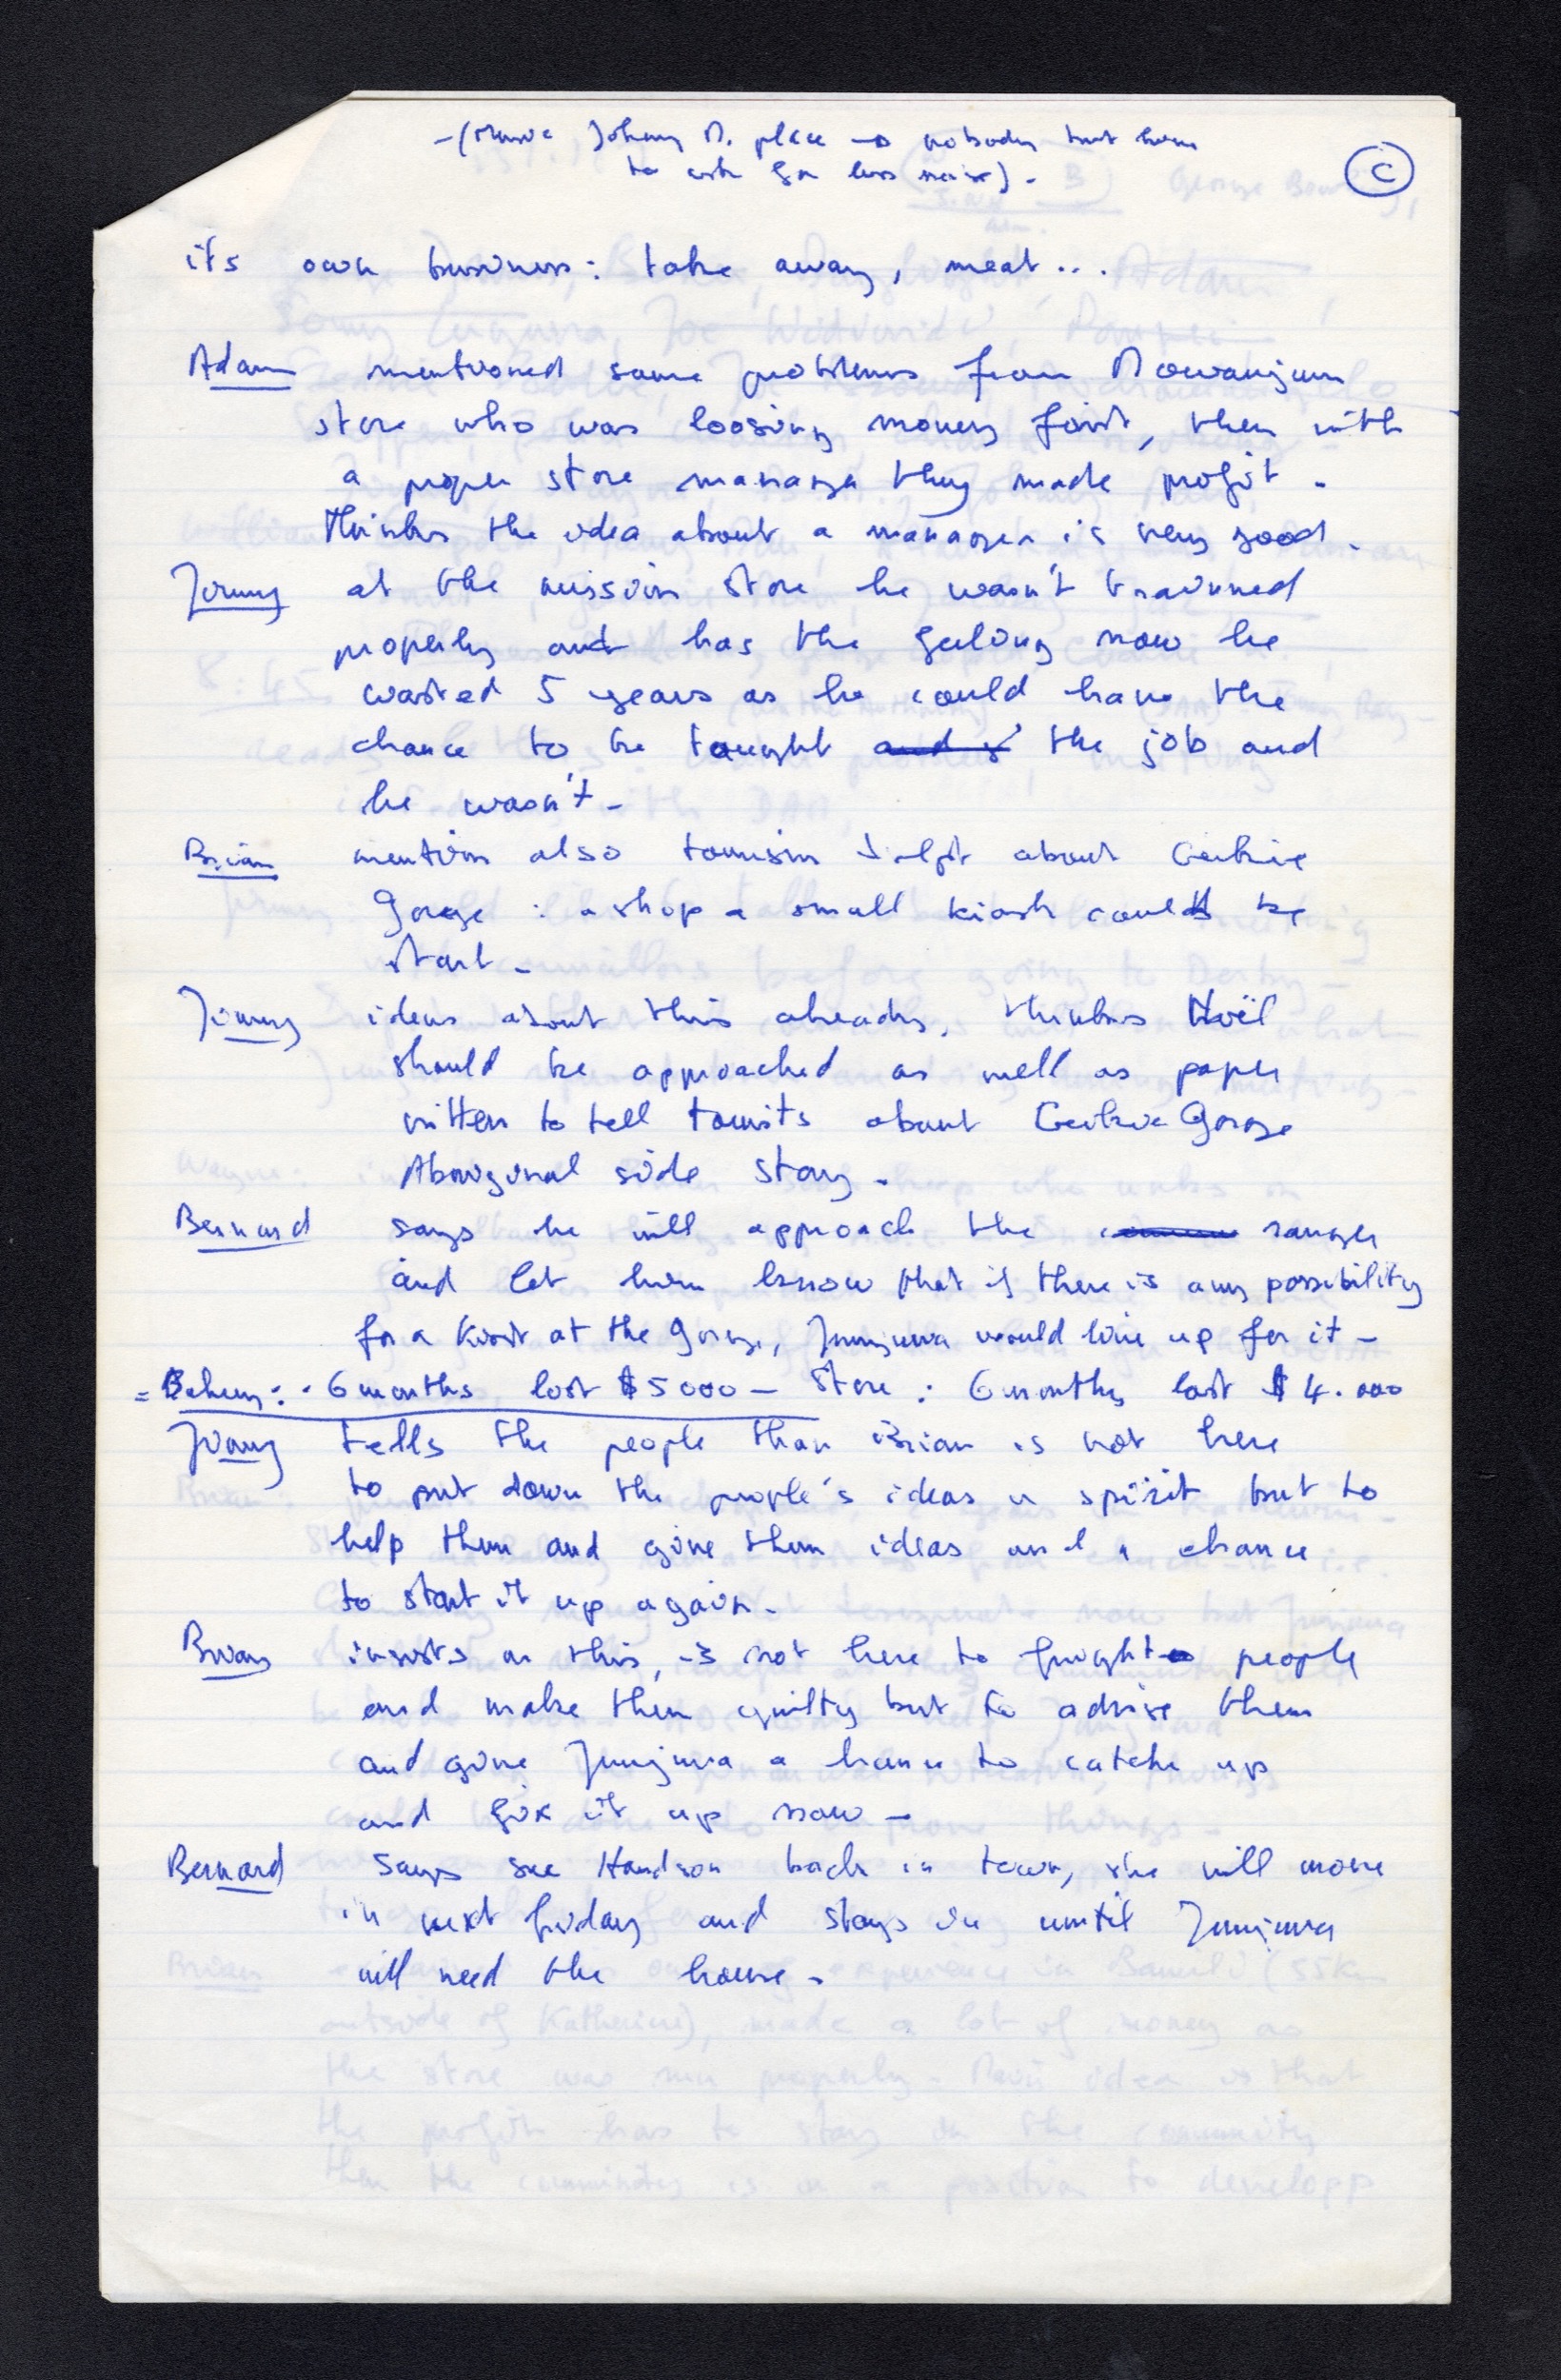 - (Music Johnny M. place → nobody but him
to ask for less noise) -
C
its own business: take away, meat...
Adam mentioned same problems from Mowanjum
store who was loosing money first, then with
a proper store manager they made profit -
thinks the idea about a manager is very good -
Jimmy at the mission store he wasn't trainned
properly and has the feeling now he
wasted 5 years as he could have the
chance to be tought and the job and
he wasn't -
Brian mention also tourism about Geikie
Gorge : a shop a small kiosk could be
start -
Jimmy ideas about this already. thinks Noël
should be approached as well as paper
written to tell tourists about Geikie Gorge
Aboriginal side story -
Bernard says he will approach the ranger
and let him know that if there is any possibility
for a Kiosk at the Gorge, Junjuwa would line up for it -
= Bakery: 6 months lost $5000 - Store : 6 months lost $4.000
Jimmy tells the people than Brian is not here
to put down the people's ideas or spirit but to
help them and give them ideas and a chance
to start it up again -
Brian insists on this, is not here to fright people
and make them guilty but to advise them
and give Junjuwa a chance to catche up
and fix it up now -
Bernard says sue Handson back in town, she will move
in next friday and stays in until Junjuwa
will need the house -